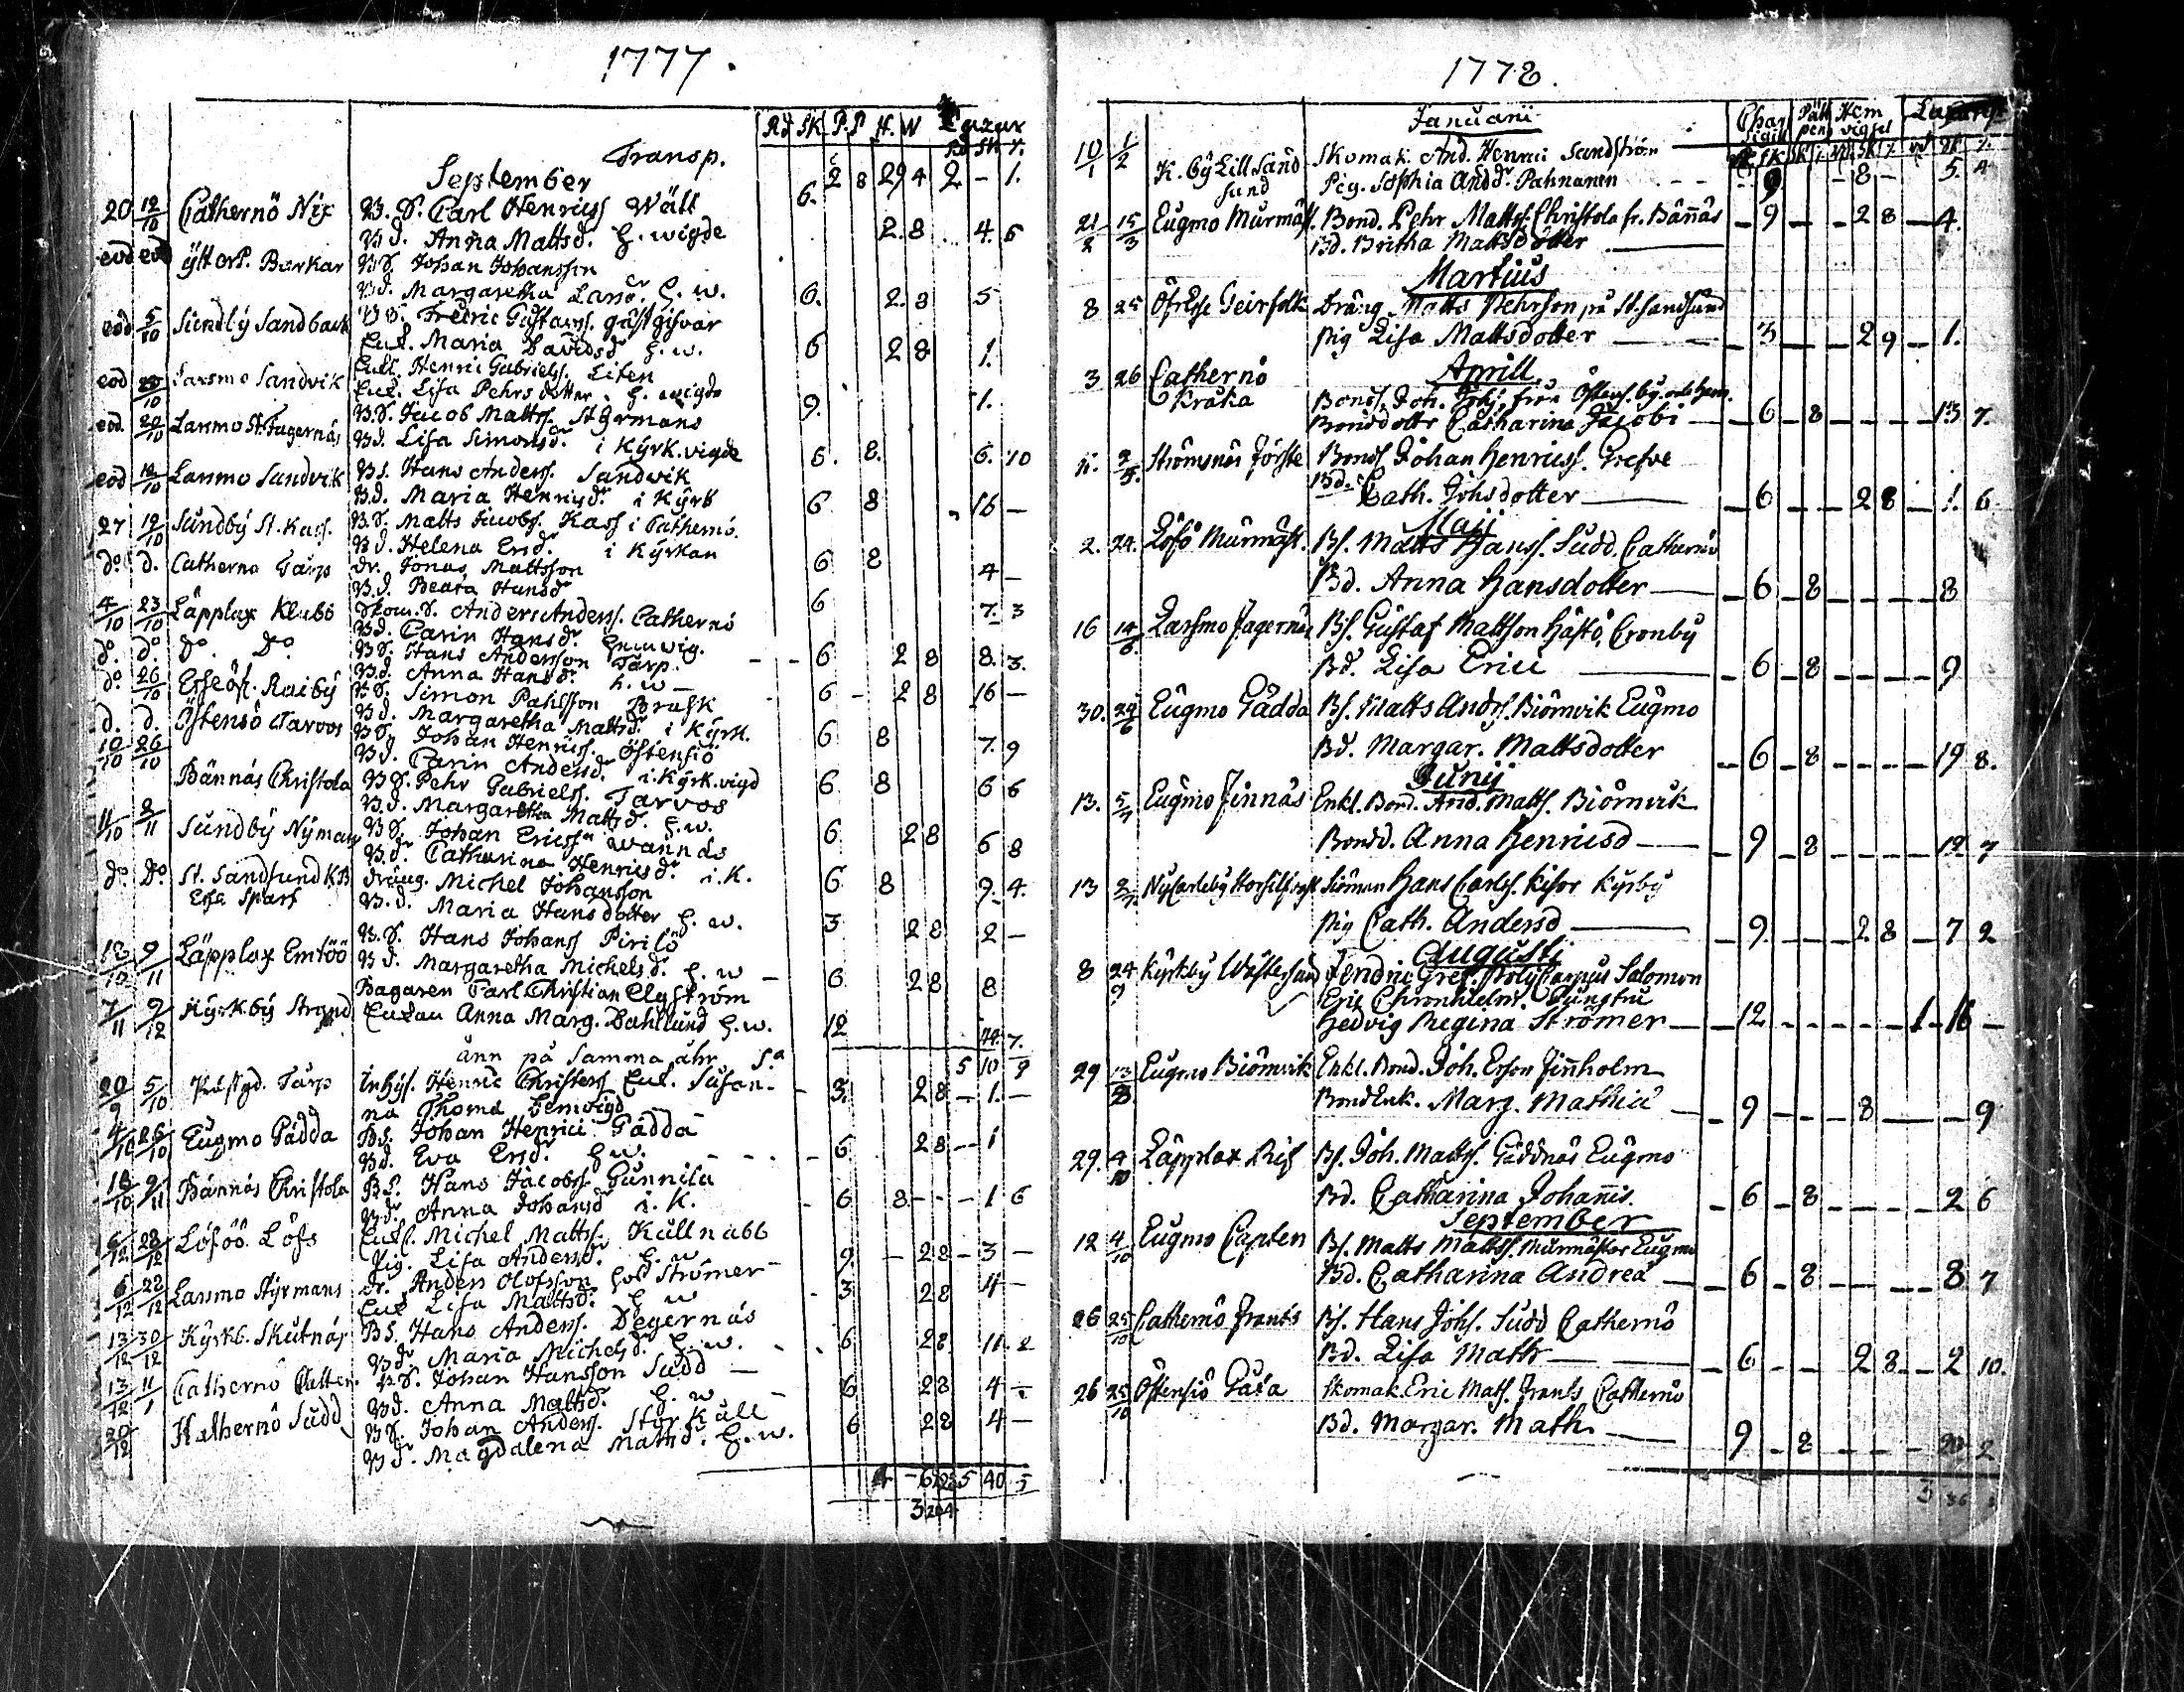 1777.
Rd SK P.P H. W Lazar
Rd SK r.
Transp.
September 2 8 29 4 2 - 1.
20 12/10 Cathernö Nix B. S. Carl Henricss Wäll 6.
B d. Anna Mattsd. h. wigde 2. 8 4. 6
eod eod ÿtterS. Barkar B S. Johan Johansson
Bd. Margaretha Larsdr h. w. 6. 2. 8 5
eod 5/10 Sundbÿ Sandback B S. Fredric Gustavss. gästgifvar
Enk. Maria Davidsdr h. w. 6 2 8 1.
eod 20/10 Larsmo Sandvik Enkl. Henric Gabrielss. Liten
Enk. Lisa Pehrs dotter h. wigde 9. 1.
eod. 20/10 Larsmo St. Fagernäs B. S. Jacob Mattss. Styrmans
Bd. Lisa Simonsdr. i Kÿrk. vigde 6. 8. 6. 10
eod 12/10 Larsmo Sandvik Bs. Hans Anderss. Sandwik
Bd. Maria Henricsdr. i Kÿrk 6 8 16 -
27 12/10 Sundbÿ St. Kass. B. S. Matts Jacobss. Kass i Cathernö.
Bd. Helena Ersdr. i Kÿrkan 6 8 4 -
do. d. Catherno Tarp Dr. Jonas Mattsson
B. d. Beata Hansdr 6 7. 3
4/10 23/10 Läpplax Klubö Skom. S. Anders Anderss. Cathernö
Bd. Carin Hansdr. hemwig. 6 2 8 8. 3.
do. do. do Do. B S. Hans Andersson Tarp.
Bd. Anna Hansdr. h. w 6 - 2 8 16 -
do. 26/10 Esse öf. Raibÿ B S. Simon Pahlsson Brask
Bd. Margaretha Mattsdr. i Kÿrk. 6 8 7. 9
d. d. Östensö Tarvos B S. Johan Henricss. Östensiö
Bd. Carin Andersdr. i. Kÿrk. vigd 6 8 6 6
10/10 26/10 Bännäs Christola B S. Pehr Gabrielss. Tarvos
B d. Margaretha Mattsdr. h. w. 6 2 8 6 8
11/10 9/11 Sundbÿ Nÿman B S. Johan Ericssn Wännäs
B. d. Catharina Henricsdr. i. K. 6 8 9. 4.
do. Do. St. Sandsund KB Dräng. Michel Johansson
Esse Sparf B. d. Maria Hansdotter h. w. 3 2 8 2 -
12/10 9/11 Läpplax Emtöö B. S. Hans Johanss Pirilö
B d. Margaretha Michelsdr. h. w 6 2 8 8
7/11 9/12 Kÿrkbÿ Strand Bagaren Carl Christian Elgström
Enkan Anna Marg. Dahllund h. w. 12 7.
änn på samma åhr Sa 5 10 9
20/9 5/10 Kastgd. Tarp Inhÿs. Henric Christerss Enk. Susan- 3. 2 8 - 1. -
na Thoma hemvigd
4/10 26/10 Eugmo Gädda Bs. Johan Henrici Gädda
Bd. Eva Ersdr. h w. 6. 2 8 - - 1
18/10 9/11 Bännäs Christola B S. Hans Jacobss Gunnila
Bdr. Anna Johansdr i. K. 6 8 - - - 1 6
6/12 28/12 Löföö. Löfs Enkl. Michel Mattss. Källnabb
Pig. Lisa Andersdr. h. w 9. - 2 8 - 3 -
6/12 28/12 Larsmo Stÿrmans Dr. Anders Olofsson hos Strömer
Enk Lisa Mattsdr. h w 3 2 8 4 -
13/12 30/12 Kÿrkb. Skutnäs BS. Hans Anderss. Degernäs
Bdr Maria Michelsdr. h. w. 6 2 8 11. 2
13/12 11/1 Cathernö Catten. B. S. Johan Hansson Sudd
Bd. Anna Mattsdr. h. w 6 2 8 4 -
20/12 Kathernö Sudd B S. Johan Anderss. Storkäll 6 2 8 4 -
B d. Magdalena Mattsdr. h. w.
5 40 5
1778.
Januarii Char sigill Päll peng Hem vigsel
10/1 1/2 K. bÿ Lill Sand Skomak. And. Henrici Sandström
sund Pig. Sophia Andsdr. Pahnanen 9 - 8 - 5 4
21/2 15/3 Eugmo Murmäst. Bond. Pehr Mattss. Christola fr. Bännäs - 9 - - 2 8 - 4.
Bd. Britha Mattsdotter
Martius
8 25 Öfr Esse Geirfolk Dräng Matts Pehrson på St. Sandsund
Pig Lisa Mattsdotter - 3 - - 2 9 - 1.
Aprill
3 26 Cathernö
Kråka Bonds. Joh. Johss från Östens. bÿ
Bondsdotter Catharina Jacobi - 6 - 8 - - - 13 7.
Strömsnäs Förste Bonds Johan Henricss. Grefve
Bd. Cath. Johsdotter - 6 - - 2 8 - 1. 6
Maji
2. 24. Löfö Murmäst. Bs. Matts Hanss. Sudd. Cathernö
Bd. Anna Hansdotter - 6 - 8 - - - 8
16 14/6 Larsmo Fagernäs Bs. Gustaf Mattson Hästö, Cronbÿ
Bd. Lisa Erici - 6 - 8 - - - 9
30. 24/6 Eugmo Gädda Bs. Matts Andss. Biörnvik Eugmo
Bd. Margar. Mattsdotter - 6 - 8 - - - 19 8.
Junij
13. 5/7 Eugmo Finnäs Enkl. Bond. And. Matts. Biörnvik
Bondd. Anna Henricsd - 9 - 8 - - - 12 7
13 2/7 Nÿcarlebÿ Siöman Hans Carlss. Kisor Kÿrbÿ
Pig Cath. Andersd - 9. - - 2 8 - 7 2
Augusti
8 24/9 Kÿrkbÿ Westersund Fendric Gref. Polÿcarpus Salomon
Eric Chronhielm. Jungfru
Hedvig Regina Strömer - 12 - - - - 1 - 16 -
29 13/9 Eugmo Biörnvik Enkl. Bond. Joh. Erson Finnholm
Bond Enk. Marg. Mathiæ - 9 - - 8 - - 9
29. 4/10 Läpplax Rif Bs. Joh. Matts. Gäddnäs Eugmo
Bd. Catharina Johannis. - 6 - 8 - - - 2 6
September
12 4/10 Eugmo Capten Bs. Matts Mattss. Murmästar Eugmo
Bd. Catharina Andreæ - 6 - 8 - - - 8 7
26 25/10 Cathernö Frants Bs. Hans Johs. Sudd Cathernö
Bd. Lisa Math - 6 - - 2 8 - 2 10.
26 25/10 Östensiö Gåsa Skomak. Eric Maths. Frants Cathernö
Bd. Margar. Math. 9 - 8 - - - 20 2
3 36